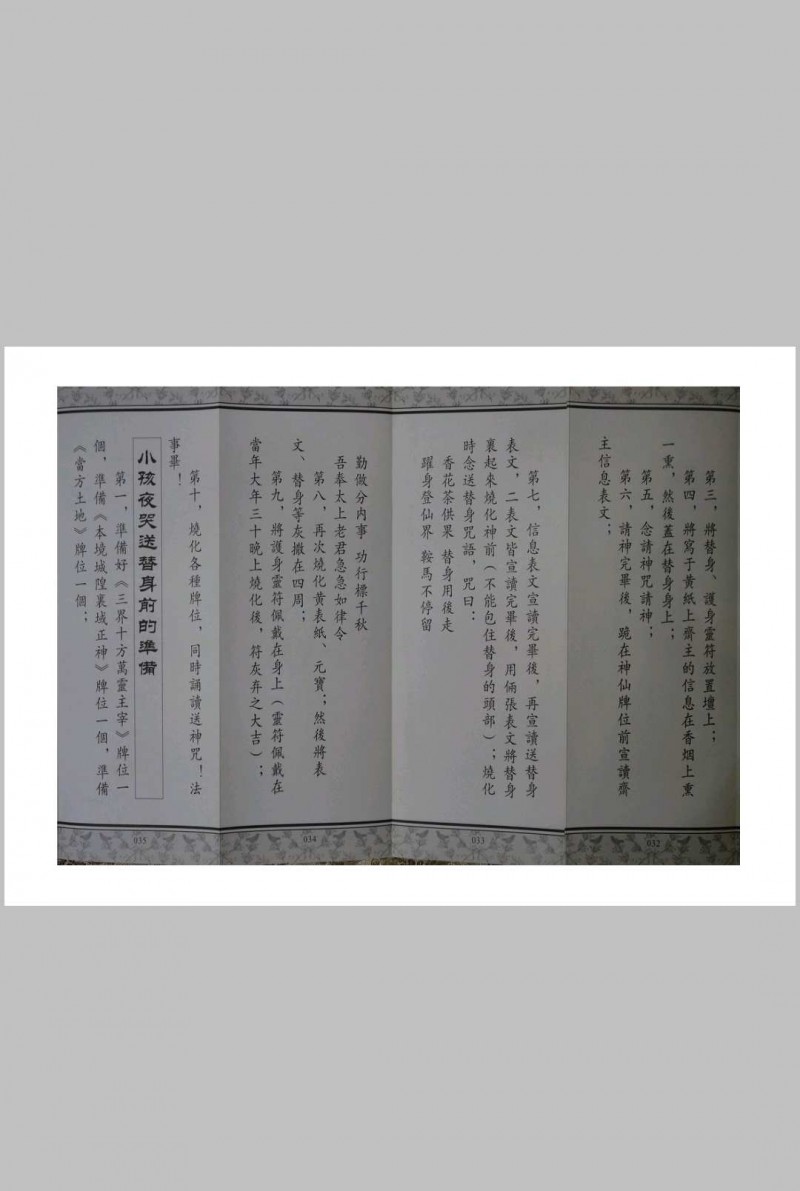 第三，將替身、護身靈符放置壇上；
第四，將寫于黃紙上齋主的信息在香烟上熏
一熏，然後蓋在替身身上；
第五，念請神咒請神；
第六，請神完畢後，跪在神仙牌位前宣讀齋
主信息表文；
032
第七，信息表文宣讀完畢後，再宣讀送替身
表文，二表文皆宣讀完畢後，用倆張表文將替身
裹起來燒化神前（不能包住替身的頭部）；燒化
時念送替身咒語，咒曰：
香花茶供果 替身用後走
躍身登仙界 鞍馬不停留
033
勤做分内事 功行標千秋
吾奉太上老君急急如律令
第八，再次燒化黃表紙、元寶；然後將表
文、替身等灰撒在四周；
第九，將護身靈符佩戴在身上（靈符佩戴在
當年大年三十晚上燒化後，符灰弃之大吉）；
034
第十，燒化各種牌位，同時誦讀送神咒！法
事畢！
小孩夜哭送替身前的準備
第一，準備好《三界十方萬靈主宰》牌位一
個，準備《本境城隍裏域正神》牌位一個，準備
《當方土地》牌位一個；
035